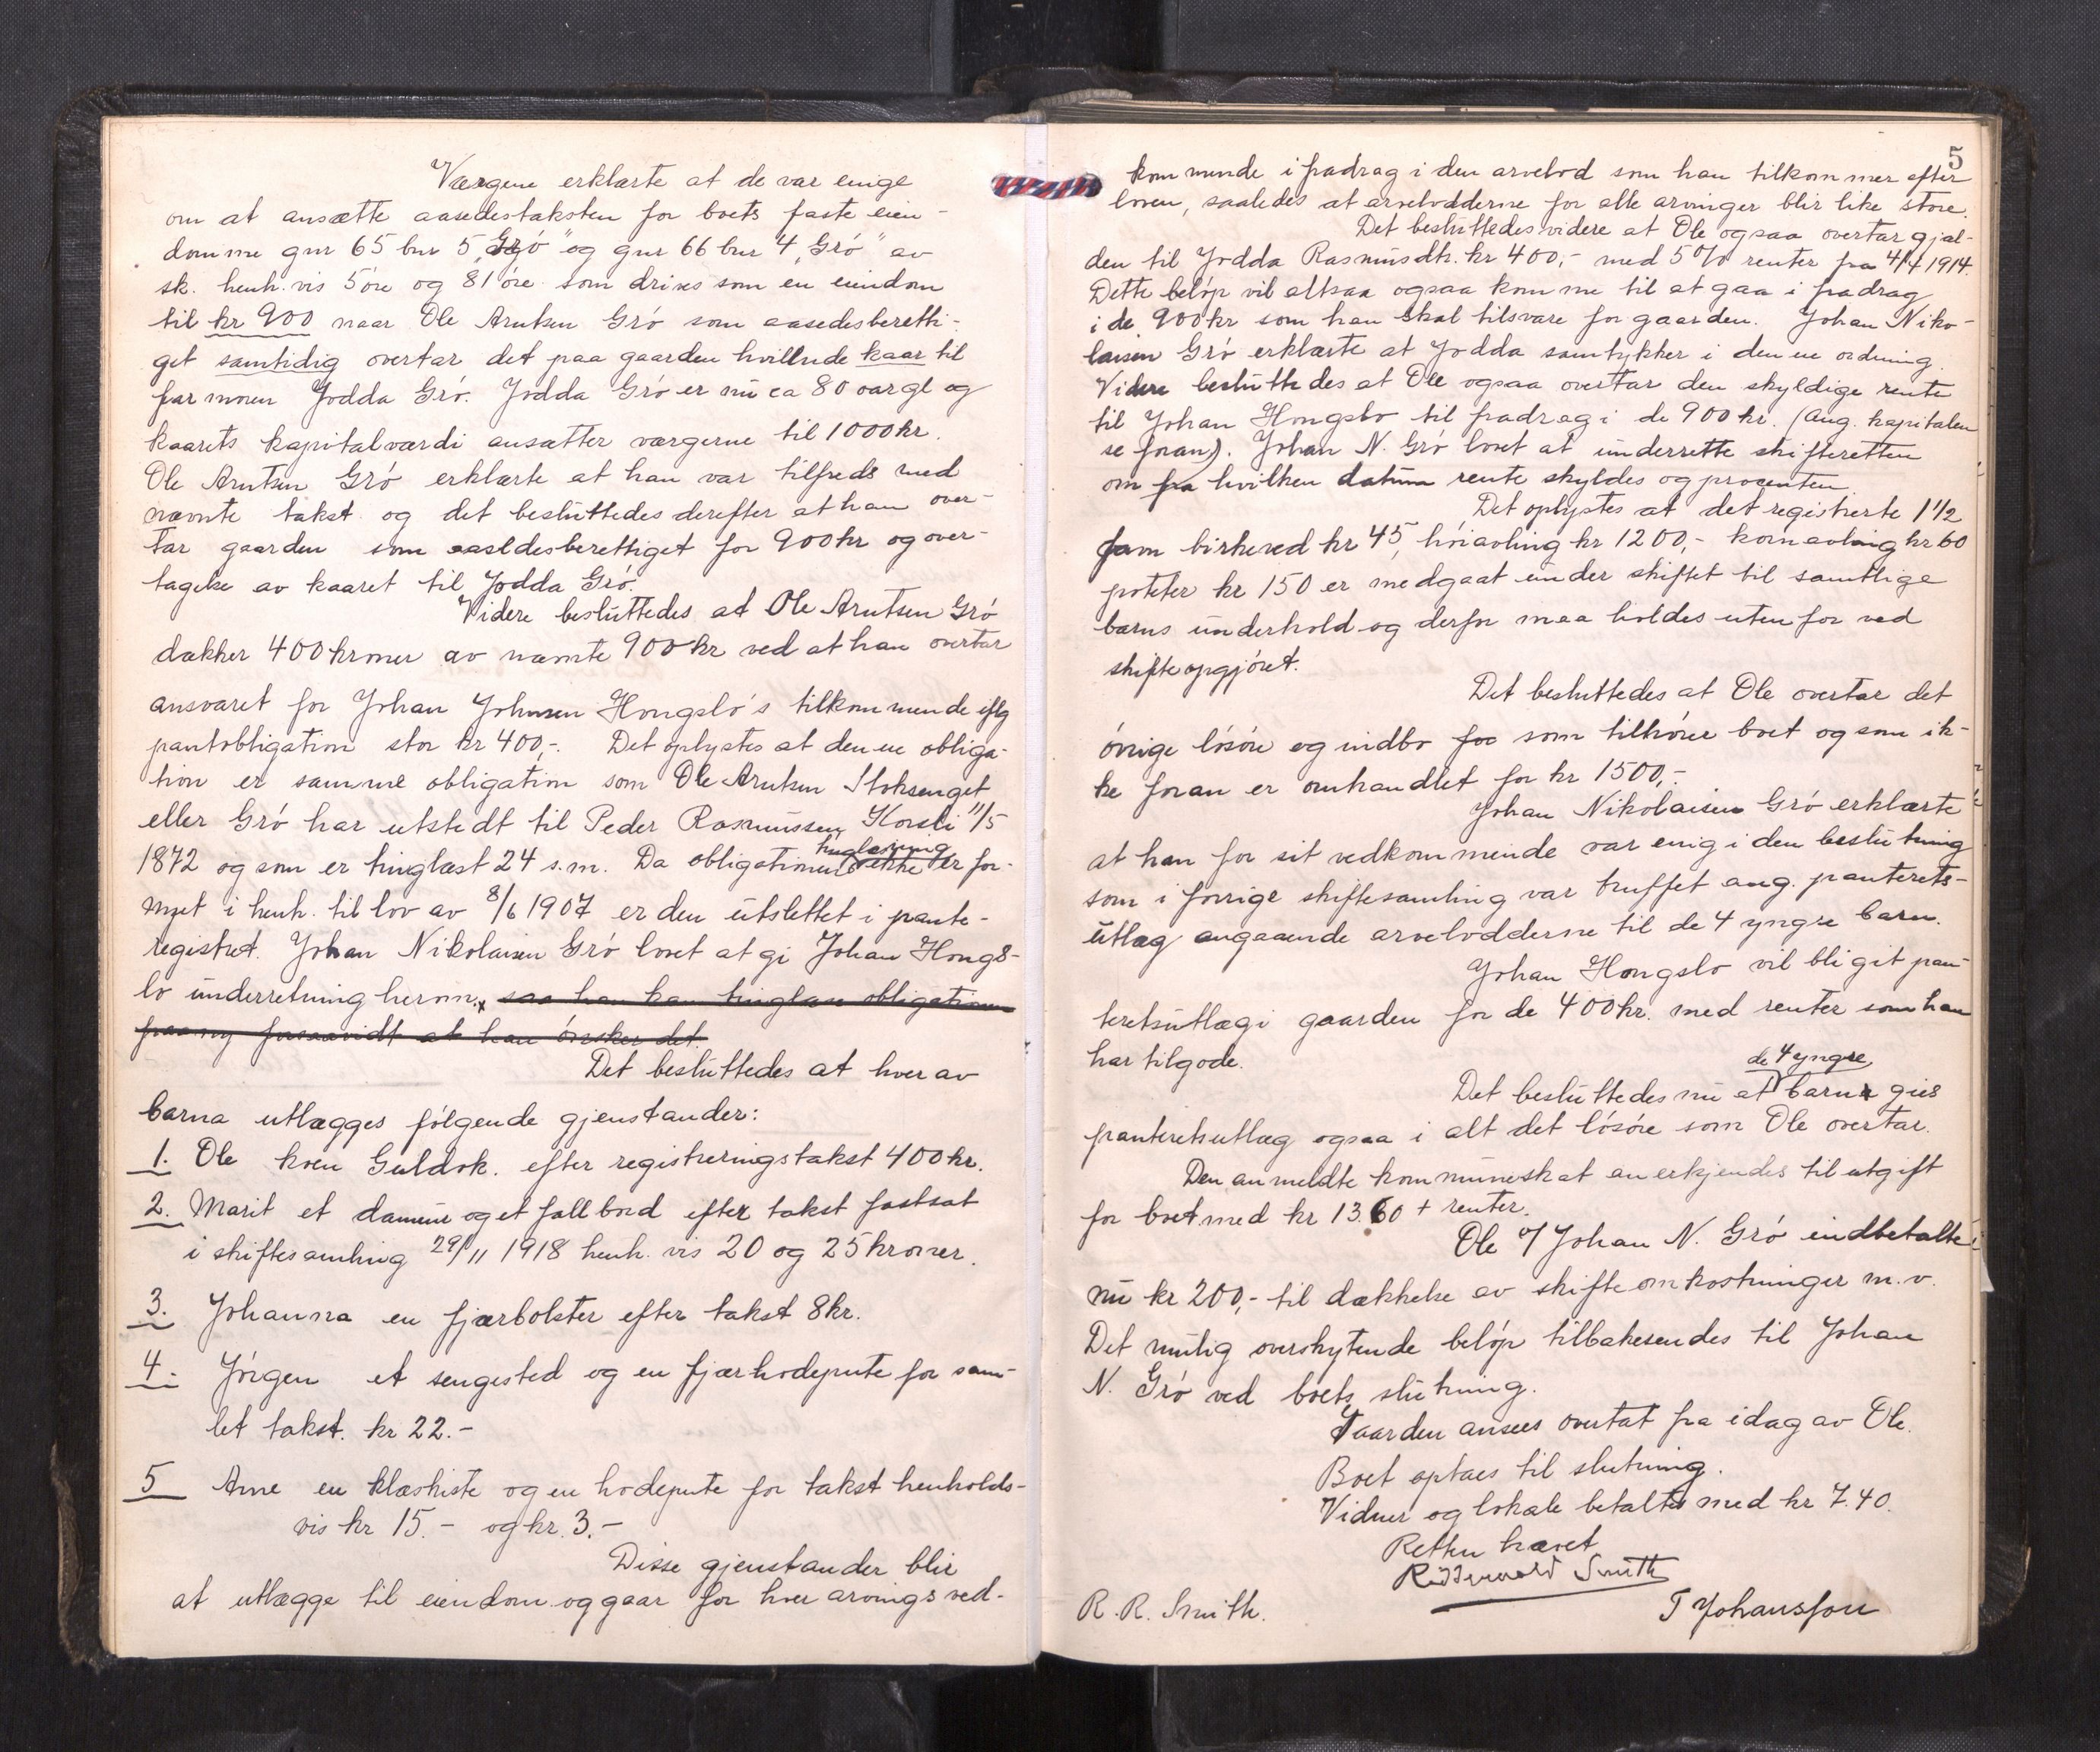 Værgene erklærte at de var enige
om at ansætte aasedestaksten for boets faste eien-
domme gnr 65 bnr 5 „Gró" og gnr 66 bnr 4 „Gró" av
sk. henh. vis 5 óre og 81 óre som drives som en eiendom
til kr 900 naar Ole Arntsen Gró som aasedesberetti-
get samtidig overtar det paa gaarden hvillnde kaar til
farmoren Jodda Gró. Jodda Gró er nu ca 80 aar gl og
kaarets kapitalværdi ansætter værgerne til 1000 kr.
Ole Arntsen Gró erklærte at han var tilfreds med
nævnte takst og det besluttedes derefter at han over-
tar gaarden som aasædesberettiget for 900 kr og over-
tagelse av kaaret til Jodda Gró.
Videre besluttedes at Ole Arntsen Gró
dækker 400 kroner av nævnte 900 kr ved at han overtar
ansvaret for Johan Johnsen Hongsló's tilkommende iflg
pantobligation stor kr 400,-. Det oplystes at denne obliga-
tion er samme obligation som Ole Arntsen Stoksenget
eller Gró har utstedt til Peder Rasmussen Korsli 11/5
1872 og som er tinglæst 24 s.m. Da obligationens tinglæsning ikke er for-
nyet i henh. til lov av 8/6 1907 er den utslettet i pante-
registret. Johan Nikolaisen Gró lovet at gi Johan Hongs-
lo underretning herom. x saa han kan tinglæse obligationen
paa ny forsaavidt at han ónsker det.
Det besluttedes at hver av
barna utlægges fólgende gjenstander:
1. Ole koen Guldok. efter registreringstakst 400 kr.
2. Marit et dameur og et fallbord efter takst fastsat
i skiftesamling 29/11 1918 henh. vis 20 og 25 kroner.
3. Johanna en fjærbolster efter takst 8 kr.
4. Jórgen et sengested og en fjærhodepute for sam-
let takst. kr 22.-
5 Arne en klæskiste og en hodepute for takst henholds-
vis kr 15.- og kr. 3.-
Disse gjenstander blir
at utlægge til eiendom og gaar for hver arvings ved-
5
kommende i fradrag i den arvelod som han tilkommer efter
loven, saaledes at arvelodderne for alle arvinger blir like store.
Det besluttedes videre at Ole ogsaa overtar gjæl-
den til Jodda Rasmusdtr. kr 400,- med 5 % renter fra 4/4 1914.
Dette belóp vil altsaa ogsaa komme til at gaa i fradrag
i de 900 kr som han skal tilsvare for gaarden. Johan Niko-
laisen Gró erklærte at Jodda samtykker i denne ordning.
Videre besluttedes at Ole ogsaa overtar den skyldige rente
til Johan Hongslo til fradrag i de 900 kr. (Ang. kapitalen
se foran). Johan N. Gró lovet at underrette skifteretten
om fra hvilken datum rente skyldes og procenten.
Det oplystes at det registrerte 1 1/2
favn birkeved kr 45, hóiavling kr 1200,- kornavling kr 60
poteter kr 150 er medgaat under skiftet til samtlige
barns underhold og derfor maa holdes utenfor ved
skifteopgjóret.
Det besluttedes at Ole overtar det
óvrige lósóre og indbo som tilhórer boet og som ik-
ke foran er omhandlet for kr 1500,-.
Johan Nikolaisen Gró erklærte
at han for sit vedkommende var enig i den beslutning
som i forrige skiftesamling var truffet ang. panterets-
utlæg angaaende arvelodderne til de 4 yngre barn.
Johan Hongslo vil bli git pan-
teretsutlæg i gaarden for de 400 kr. med renter som han
har tilgode.
Det besluttedes nu at de 4 yngre barn gies
panteretsutlæg ogsaa i alt det lósóre som Ole overtar.
Den anmeldte kommuneskat anerkjendes til utgift
for boet med kr 13.60 + renter.
Ole v/ Johan N. Gró indbetalte
nu kr 200,- til dækkelse av skifteomkostninger m.v.
Det mulig overskytende belóp tilbakesendes til Johan
N. Gró ved boets slutning.
Gaarden ansees overtat fra idag av Ole.
Boet optaes til slutning.
Vidner og lokale betaltes med kr 7.40.
Retten hævet
Smith
R. R. Smith. T Johansson